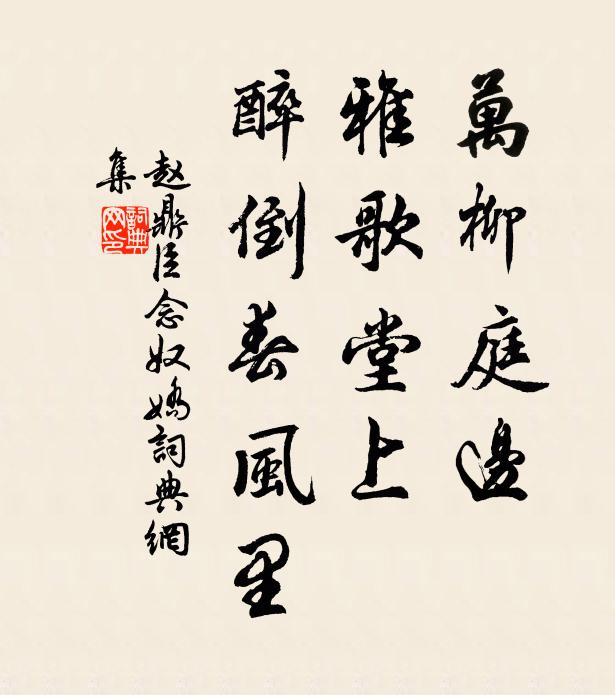 萬柳庭邊
雅歌堂上
醉倒春風里
赵鼎臣念奴嬌詞典網
集
詞典網印